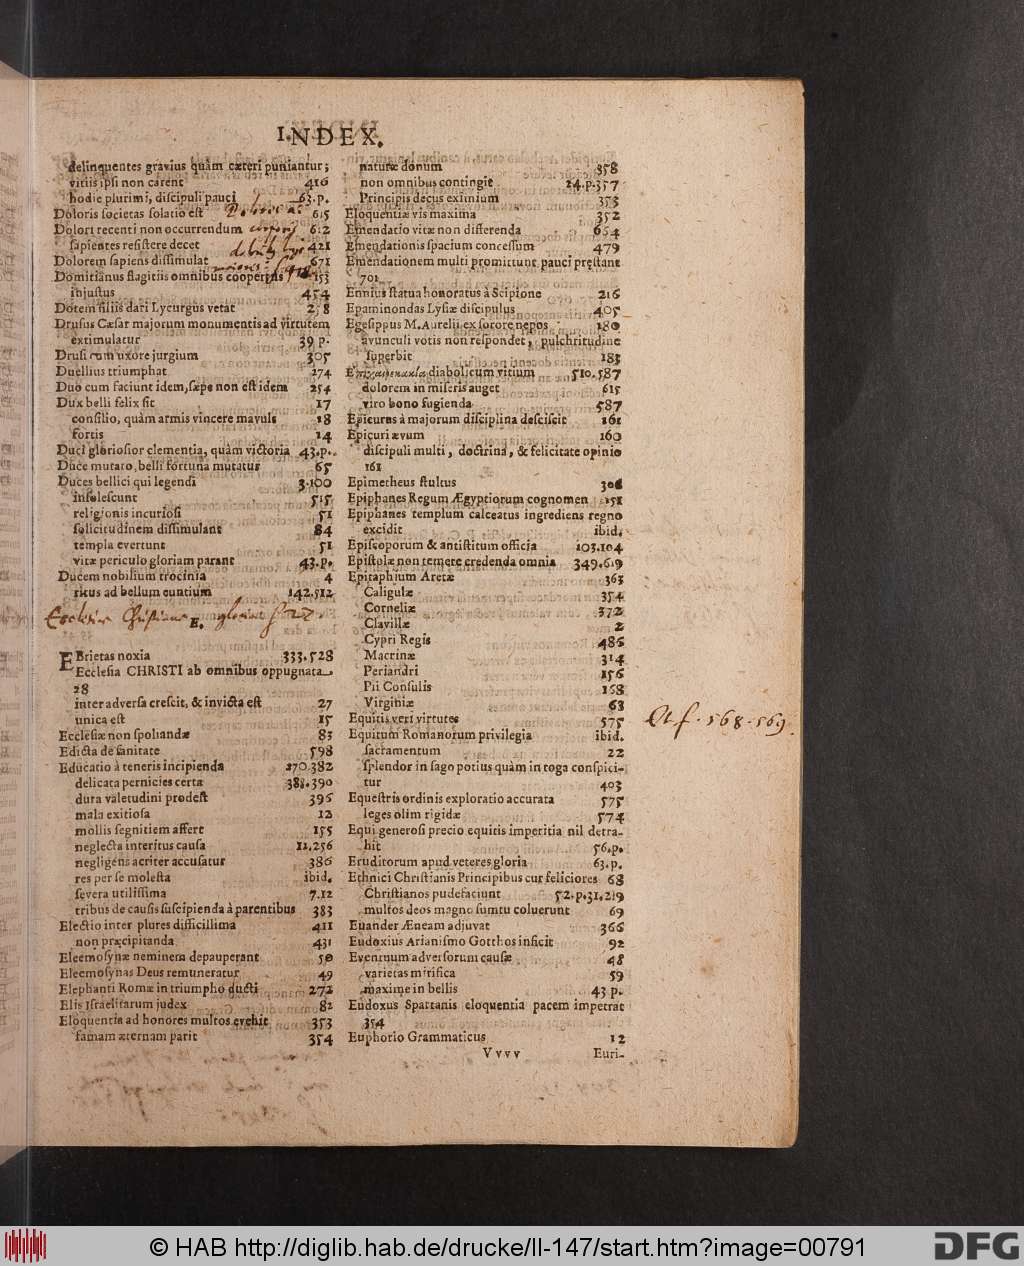 INDEX.
delinquentes gravius quàm cæteri puniantur;
vitiis ipsi non carent 416
hodie plurimi, discipuli pauci 63.p.
Doloris societas solatio est 615
Dolori recenti non occurrendum 612
sapientes resistere decet 421
Dolorem sapiens dissimulat 671
Domitianus flagitiis omnibus coopertus 153
injustus 454
Dotem filiis dari Lycurgus vetat 238
Drusus Cæsar majorum monumentis ad virtutem
extimulatur 39 p.
Drusi cum uxore jurgium 305
Duellius triumphat 274
Duo cum faciunt idem, sæpe non est idem 254
Dux belli felix sit 17
consilio, quàm armis vincere mavult 18
fortis 14
Duci gloriosior clementia, quàm victoria 43.p.
Duce mutato, belli fortuna mutatur 65
Duces bellici qui legendi 3.100
insolescunt 515
religionis incuriosi 51
solicitudinem dissimulant 84
templa evertunt 51
vitæ periculo gloriam parant 43.p.
Ducem nobilium trocinia 4
ritus ad bellum euntium 142.512
Ecclesiæ Christianæ gloria
E.
EBrietas noxia 333.528
Ecclesia CHRISTI ab omnibus oppugnata
28
inter adversa crescit, & invicta est 27
unica est 15
Ecclesiæ non spoliandæ 83
Edicta de sanitate 598
Educatio à teneris incipienda 270.382
delicata pernicies certa 388.390
dura valetudini prodest 396
mala exitiosa 12
mollis segnitiem affert 155
neglecta interitus causa 12.256
negligens acriter accusatur 386
res per se molesta ibid.
severa utilissima 7.12
tribus de causis suscipienda à parentibus 383
Electio inter plures difficillima 411
non præcipitanda 431
Eleemosynæ neminem depauperant 50
Eleemosynas Deus remuneratur 49
Elephanti Romæ in triumpho ducti 272
Elis Israelitarum judex 82
Eloquentia ad honores multos evehit 353
famam æternam parit 354
naturæ donum 358
non omnibus contingit 24.p.357
Principis decus eximium 353
Eloquentiæ vis maxima 352
Emendatio vitæ non differenda 654
Emendationis spacium concessum 479
Emendationem multi promittunt, pauci præstant
701
Ennius statua honoratus à Scipione 216
Epaminondas Lysiæ discipulus 405
Egesippus M. Aurelii ex sorore nepos 180
avunculi votis non respondet, pulchritudine
superbit 183
Ἐπιχαιρεκακία diabolicum vitium 510.587
dolorem in miseris auget 615
viro bono fugienda 587
Epicurus à majorum disciplina desciscit 161
Epicuri ævum 160
discipuli multi, doctrina, & felicitate opinio
161
Epimetheus stultus 306
Epiphanes Regum Ægyptiorum cognomen 151
Epiphanes templum calceatus ingrediens regno
excidit ibid.
Episcoporum & antistitum officia 103.104
Epistolæ non temere credenda omnia 349.619
Epitaphium Aretæ 363
Caligulæ 354
Corneliæ 372
Clavillæ 2
Cypri Regis 486
Macrinæ 314
Periandri 156
Pii Consulis 168
Virginiæ 63
Equitis veri virtutes 575
Et f. 568.569.
Equitum Romanorum privilegia ibid.
sacramentum 22
splendor in sago potius quàm in toga conspici-
tur 403
Equestris ordinis exploratio accurata 575
leges olim rigidæ 574
Equi generosi precio equitis imperitia nil detra-
hit 56.p.
Eruditorum apud veteres gloria 63.p.
Ethnici Christianis Principibus cur feliciores 68
Christianos pudefaciunt 52.p.31.219
multos deos magno sumtu coluerunt 69
Euander Æneam adjuvat 366
Eudoxius Arianismo Gotthos inficit 92
Eventuum adversorum causæ 48
varietas mirifica 59
maxime in bellis 43 p.
Eudoxus Spartanis eloquentia pacem impetrat
354
Euphorio Grammaticus 12
Vvvv Euri-
© HAB http://diglib.hab.de/drucke/ll-147/start.htm?image=00791
DFG